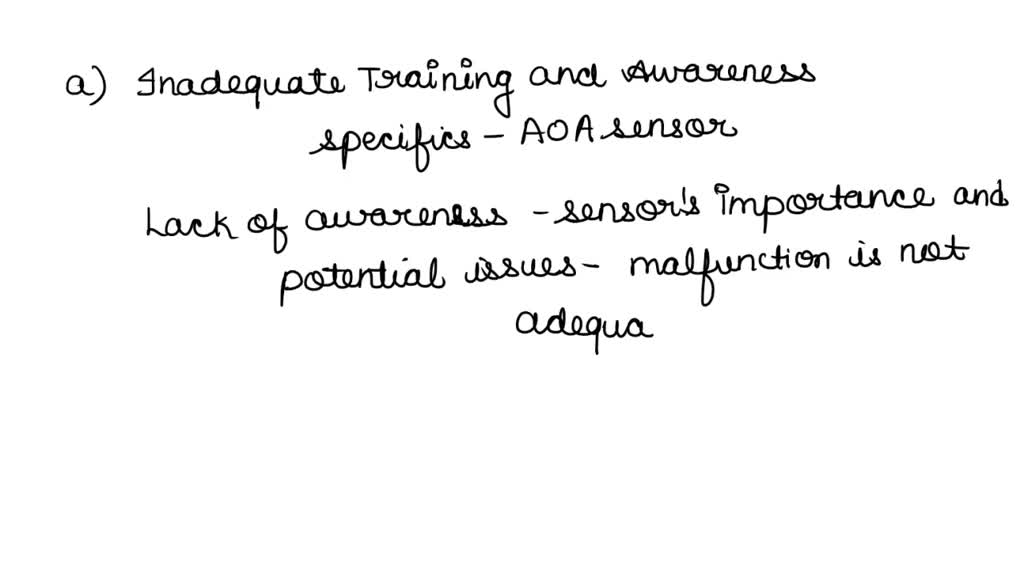 a) Inadequate Training and Awareness
specifics - AOA sensor
Lack of awareness - sensor's importance and
potential issues - malfunction is not
adequa